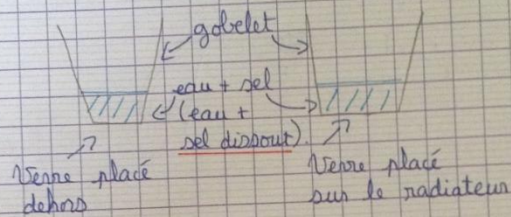 gobelet
eau + sel
(eau +
sel dissout)
Verre placé
dehors
Verre placé
sur le radiateur